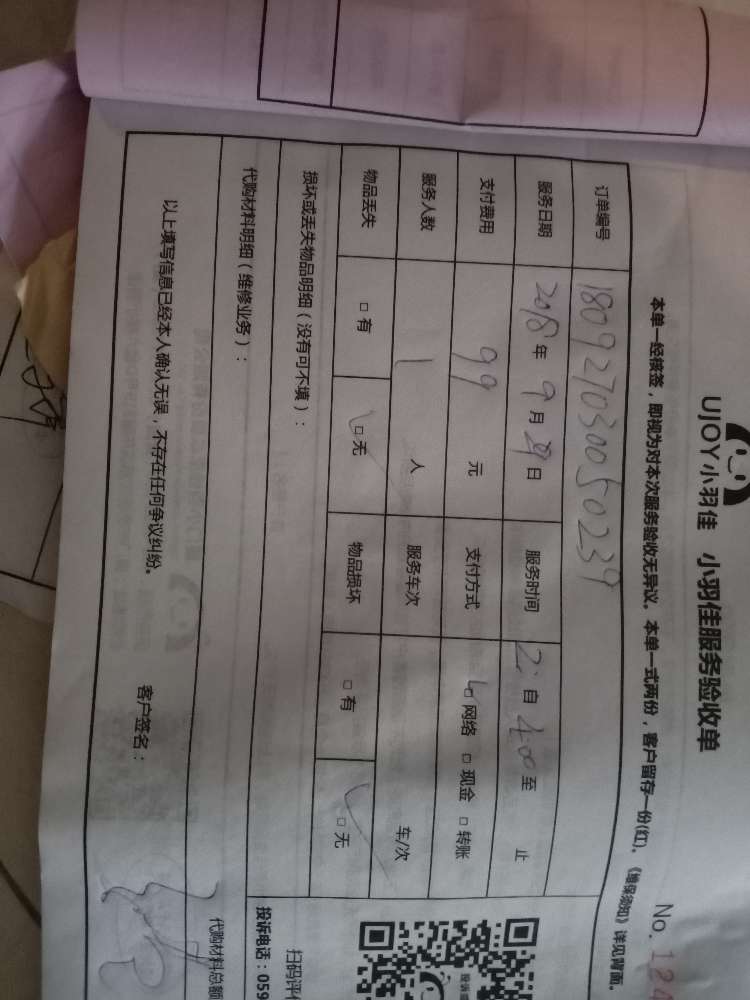 UJOY小羽佳 小羽佳服务验收单
No.
本单一经核签，即视为对本次服务验收无异议。本单一式两份，客户留存一份(红)。《维保须知》详见背面。
订单编号 180927030050239
服务日期 2018年9月29日 服务时间 2: 自 4:00 至 止
支付费用 99 元 支付方式 □网络 □现金 □转账
服务人数 1 人 服务车次 车/次
物品丢失 □有 □无 物品损坏 □有 □无
损坏或丢失物品明细（没有可不填）：
代购材料明细（维修业务）：
代购材料总额
以上填写信息已经本人确认无误，不存在任何争议纠纷。 客户签名：
扫码评
投诉电话：059